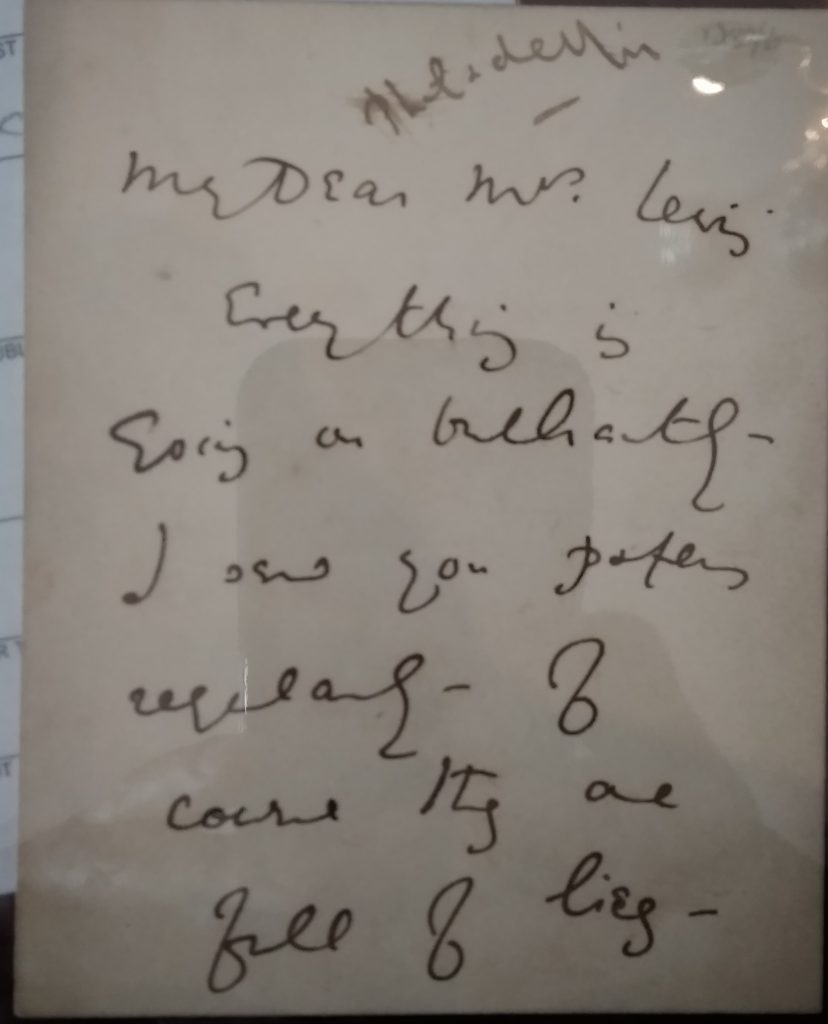 Philadelphia
My Dear Mrs. Lewis
Everything is
Going on brilliantly -
I send you papers
regularly - Of
course they are
full of lies -